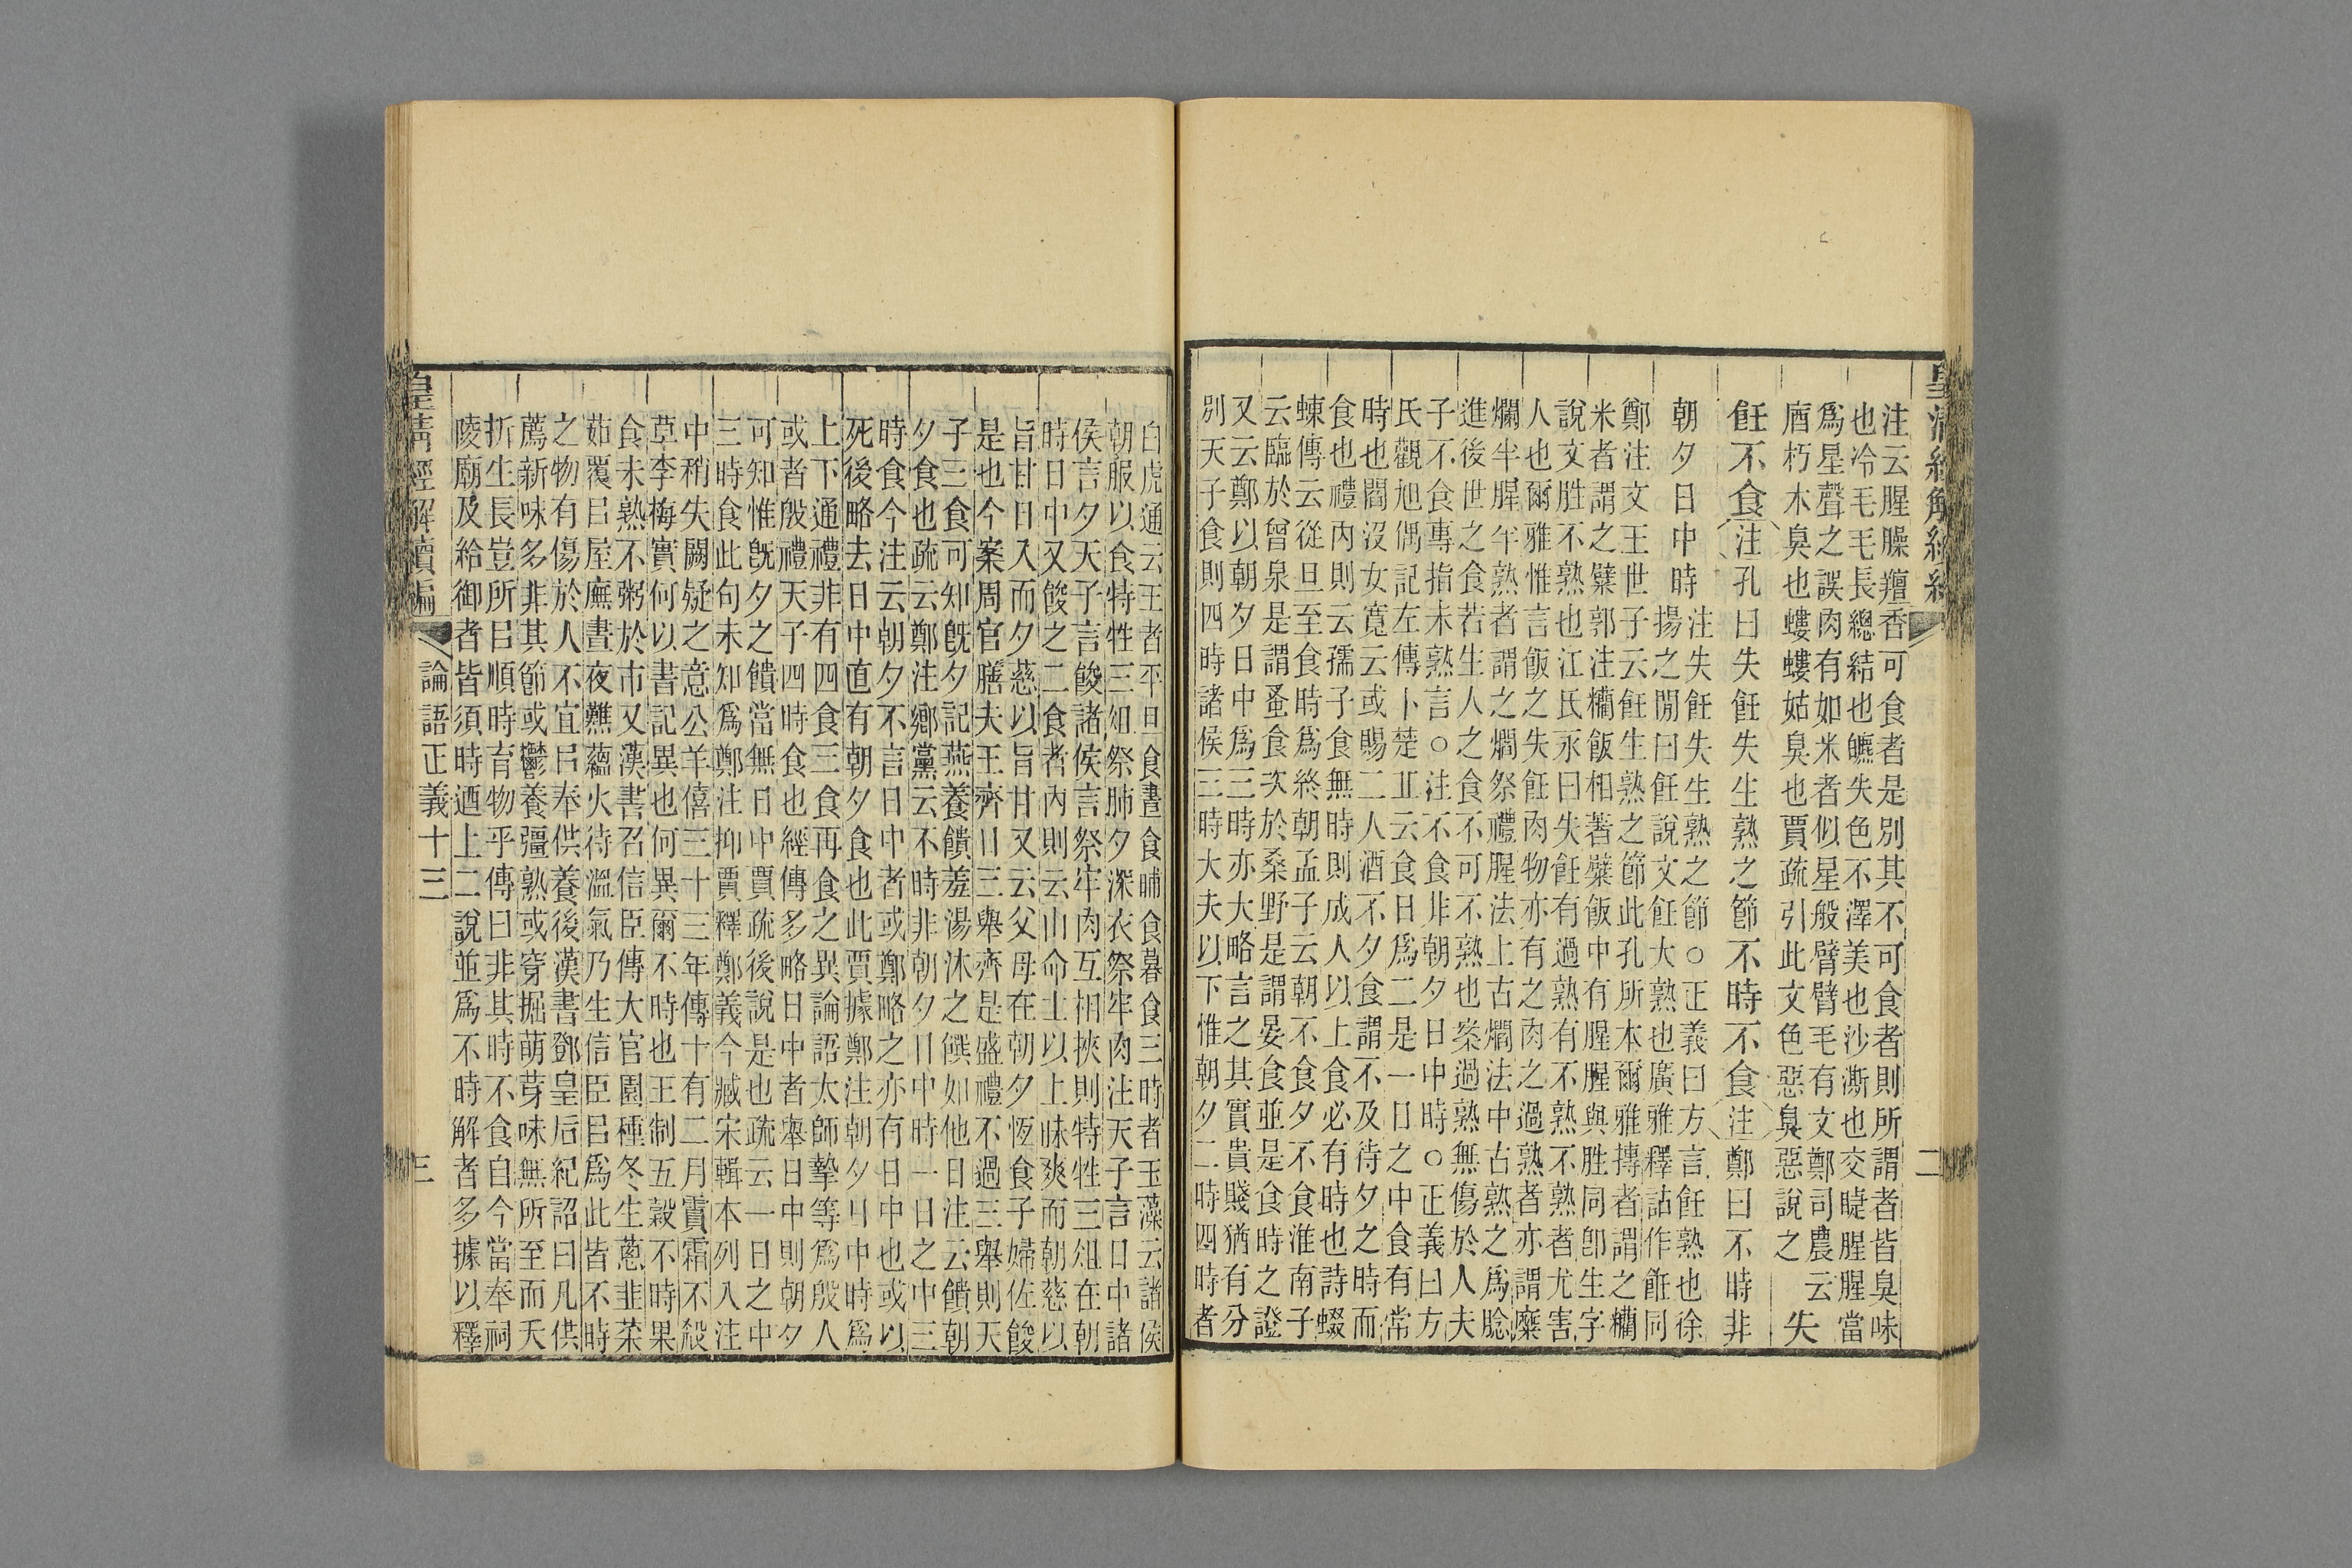 皇清經解續編
二
注云腥臊羶香可食者是別其不可食者則所謂者皆臭味
也冷毛毛長總結也皫失色不澤美也沙澌也交睫腥腥當
爲星聲之誤肉有如米者似星般臂臂毛有文鄭司農云
庮朽木臭也螻螻蛄臭也賈疏引此文色惡臭惡說之
失
飪不食注孔曰失飪失生熟之節不時不食注鄭曰不時非
朝夕日中時
注失飪失生熟之節○正義曰方言飪熟也徐
揚之閒曰飪說文飪大熟也廣雅釋詁作餁同
鄭注文王世子云飪生熟之節此孔所本爾雅摶者謂之糷
米者謂之糪郭注糷飯相著糪飯中有腥腥與胜同卽生字
說文胜不熟也江氏永曰失飪有過熟有不熟不熟者尤害
人也爾雅惟言飯之失飪肉物亦有之肉之過熟者亦謂糜
爛半腥半熟者謂之爓祭禮腥法上古爓法中古熟之爲腍
進後世之食若生人之食不可不熟也案過熟無傷於人夫
子不食專指未熟言○注不食非朝夕日中時○正義曰方
氏觀旭偶記左傳卜楚丘云食日爲二是一日之中食有常
時也閻沒女寬云或賜二人酒不夕食謂不及待夕之時而
食也禮內則云孺子食無時則成人以上食必有時也詩蝃
蝀傳云從旦至食時爲終朝孟子云朝不食夕不食淮南子
云臨於曾泉是謂蚤食次於桑野是謂晏食並是食時之證
又云鄭以朝夕日中爲三時亦大略言之其實貴賤猶有分
別天子食則四時諸侯三時大夫以下惟朝夕二時四時者
白虎通云王者平旦食晝食晡食暮食三時者玉藻云諸侯
朝服以食特牲三俎祭肺夕深衣祭牢肉注天子言日中諸
侯言夕天子言餕諸侯言祭牢肉互相挾則特牲三俎在朝
時日中又餕之二食者內則云由命士以上昧爽而朝慈以
旨甘日入而夕慈以旨甘又云父母在朝夕恆食子婦佐餕
是也今案周官膳夫王齊日三舉齊是盛禮不過三舉則天
子三食可知旣夕記燕養饋羞湯沐之饌如他日注云饋朝
夕食也疏云鄭注鄉黨云不時非朝夕日中時一日之中三
時食今注云朝夕不言日中者或鄭略之亦有日中也或以
死後略去日中直有朝夕食也此賈據鄭注朝夕日中時爲
上下通禮非有四食三食再食之異論語太師摯等爲殷人
或者殷禮天子四時食也經傳多略日中者舉日中則朝夕
可知惟旣夕之饋當無日中賈疏後說是也疏云一日之中
三時食此句未知爲鄭注抑賈釋鄭義今臧宋輯本列入注
中稍失闕疑之意公羊僖三十三年傳十有二月霣霜不殺
草李梅實何以書記異也何異爾不時也王制五穀不時果
食未熟不粥於市又漢書召信臣傳大官園種冬生蔥韭菜
茹覆㠯屋廡晝夜㸐蘊火待溫氣乃生信臣㠯爲此皆不時
之物有傷於人不宜㠯奉供養後漢書鄧皇后紀詔曰凡供
薦新味多非其節或鬱養彊熟或穿掘萌芽味無所至而夭
折生長豈所㠯順時育物乎傳曰非其時不食自今當奉祠
陵廟及給御者皆須時迺上二說並爲不時解者多據以釋
皇淸經解續編
論語正義十三
三